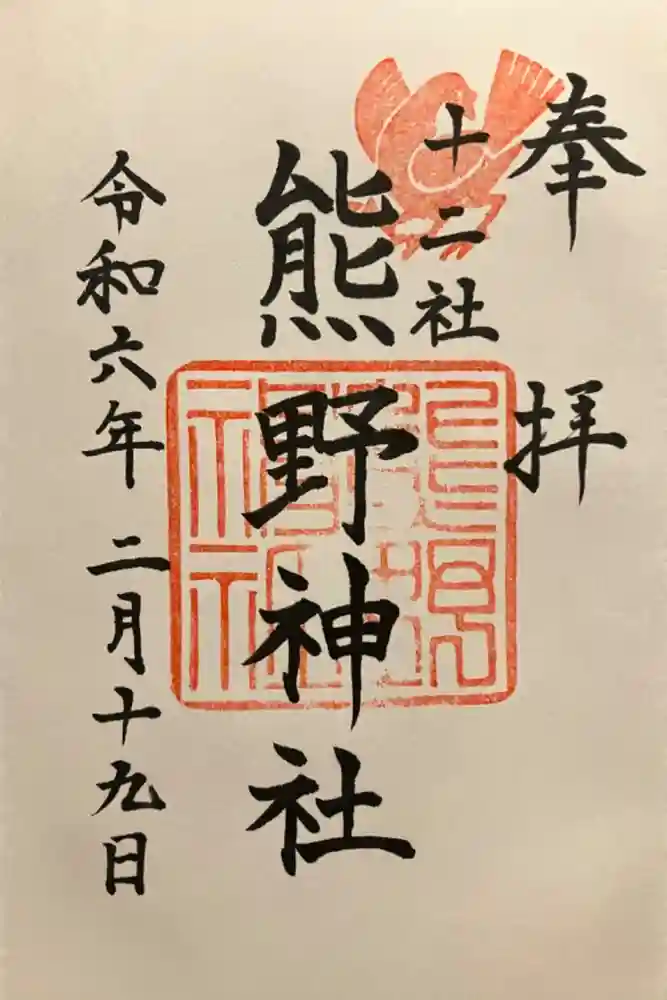 奉拝
十二社
熊野神社
令和六年 二月十九日
熊野神社